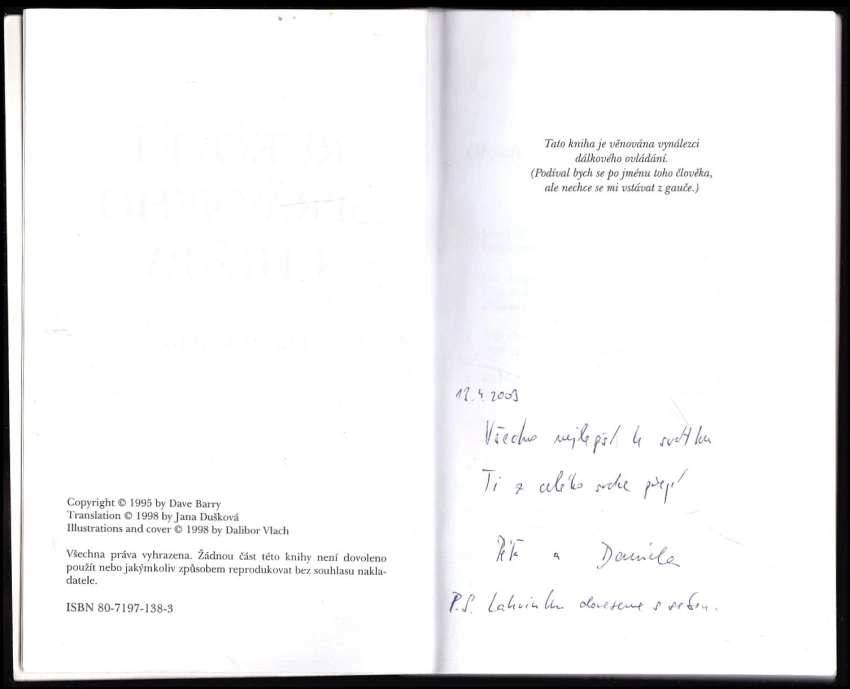 Copyright © 1995 by Dave Barry
Translation © 1998 by Jana Dušková
Illustrations and cover © 1998 by Dalibor Vlach
Všechna práva vyhrazena. Žádnou část této knihy není dovoleno
použít nebo jakýmkoliv způsobem reprodukovat bez souhlasu nakla-
datele.
ISBN 80-7197-138-3
Tato kniha je věnována vynálezci
dálkového ovládání.
(Podíval bych se po jménu toho člověka,
ale nechce se mi vstávat z gauče.)
12.4.2003
Všechno nejlepší k svátku
Ti z celého srdce přejí
a Daniela
P.S. Lahvinku dovezeme s sebou.